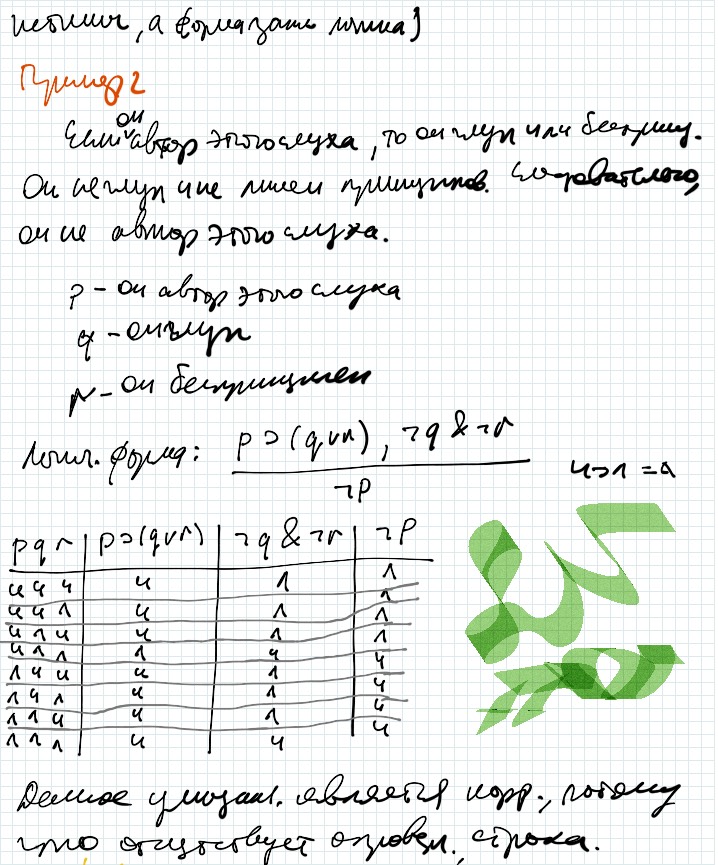 истинн, а формазаци логика)
Пример 2
Если он автор этого слуха, то он глуп или беспринц.
Он не глуп и не лишен принципов. Следовательно,
он не автор этого слуха.
p - он автор этого слуха
q - он глуп
r - он беспринципен
Логич. форма: p ⊃ (q ∨ r), ¬q & ¬r
¬p
и ⊃ л = л
p q r | p ⊃ (q ∨ r) | ¬q & ¬r | ¬p
и и и | и | л | л
и и л | и | л | л
и л и | и | л | л
и л л | л | и | л
л и и | и | л | и
л и л | и | л | и
л л и | и | л | и
л л л | и | и | и
Данное умозакл. является корр., потому
что отсутствует опровер. строка.